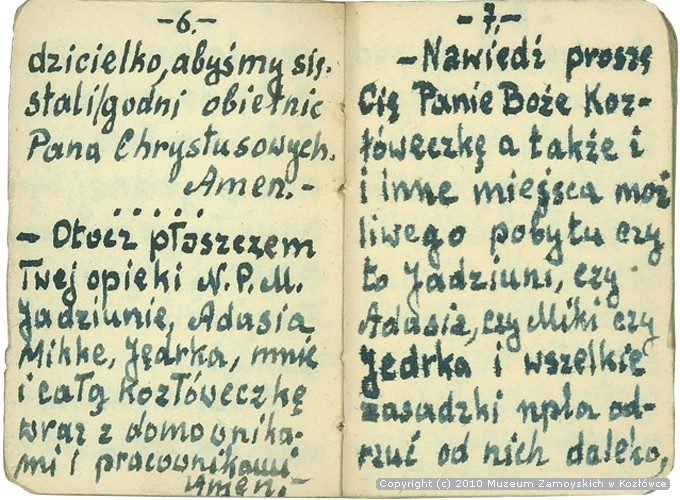 -6.-
dzicielko, abyśmy się
stali/godni obietnic
Pana Chrystusowych.
Amen.-
- Otocz płaszczem
Twej opieki N.P.M.
Jadziunie, Adasia
Mikke, Jędrka, mnie
i całą Kozłóweczkę
wraz z domownika-
mi i pracownikami
Amen.-
-7.-
- Nawiedź proszę
Cię Panie Boże Koz-
łóweczkę a także i
i inne miejsca moż
liwego pobytu czy
to Jadziuni, czy
Adasia, czy Miki czy
Jędrka i wszelkie
zasadzki npla od-
rzuć od nich daleko,
Copyright (c) 2010 Muzeum Zamoyskich w Kozłówce